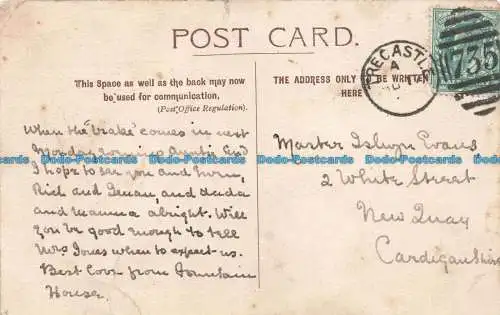 POST CARD.
This Space as well as the back may now
be used for communication.
(Post Office Regulation).
THE ADDRESS ONLY BE WRITTEN
HERE
RECASTLE
A
735
When the "brake" comes in next
Monday Auntie and
I hope to see you and
and and dada
and mamma alright. Will
you be good enough to tell
Mrs Jones when to expect us.
Best Love from Fountain
House.
Master Islwyn Evans
2 White Street
New Quay
Cardiganshire
Postcards Postcards Postcards Postcards